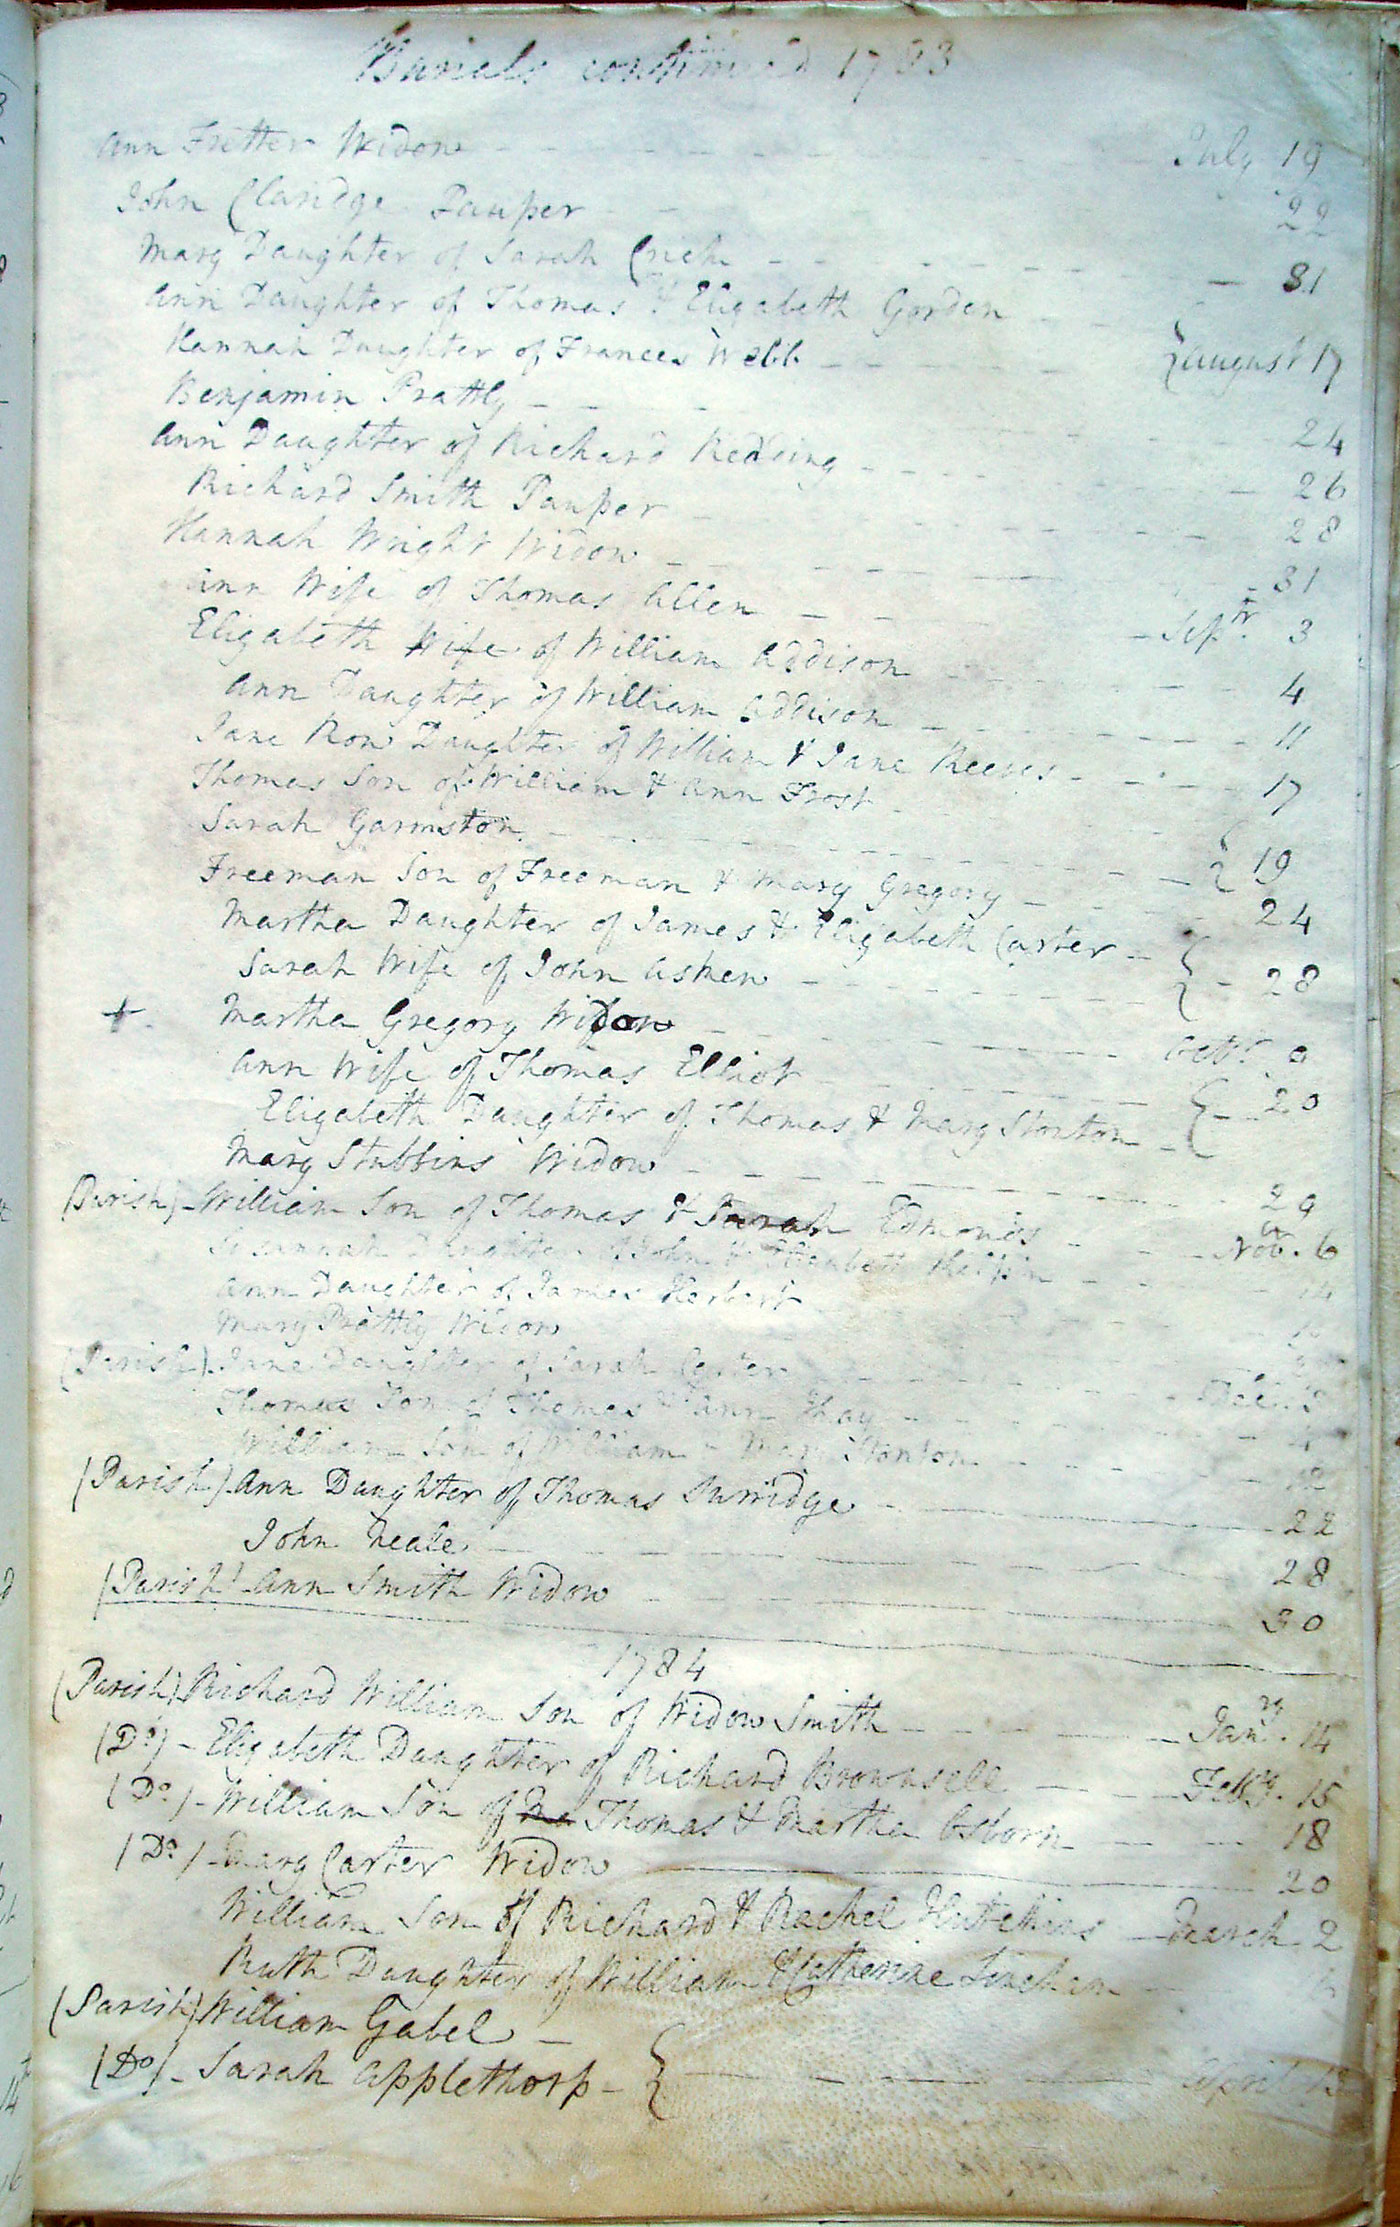 Burials continued 1783
Ann Fretter Widow July 19
John Claridge Pauper 22
Mary Daughter of Sarah Crich 31
Ann Daughter of Thomas & Elizabeth Gorden
Hannah Daughter of Frances Webb { August 17
Benjamin Prattly
Ann Daughter of Richard Redding 24
Richard Smith Pauper 26
Hannah Wright Widow 28
Ann Wife of Thomas Allen 31
Elizabeth Wife of William Addison Sepr. 3
Ann Daughter of William Addison 4
Jane Row Daughter of William & Jane Reeves 11
Thomas Son of William & Ann Frost 17
Sarah Garmston
Freeman Son of Freeman & Mary Gregory { 19
Martha Daughter of James & Elizabeth Carter 24
Sarah Wife of John Asken { 28
+ Martha Gregory Widow
Ann Wife of Thomas Elliot Octr. 9
Elizabeth Daughter of Thomas & Mary Stonton { 20
Mary Stubbins Widow
(Parish) William Son of Thomas & Sarah Edmonds 29
Susannah Daughter of John & Elizabeth Novr. 6
Ann Daughter of James Herbert 14
Mary Prattly Widow
(Parish) Jane Daughter of Sarah Carter
Thomas Son of Thomas & Ann Decr. 3
William Son of William & Mary Stonton 4
(Parish) Ann Daughter of Thomas Surridge 12
John Neale 22
(Parish) Ann Smith Widow 28
30
1784
(Parish) Richard William Son of Widow Smith Jany. 14
(Do) Elizabeth Daughter of Richard Brownsell Feby. 15
(Do) William Son of Thomas & Martha Osborn 18
(Do) Mary Carter Widow 20
William Son of Richard & Rachel Hutchins March 2
Ruth Daughter of William & Catherine
(Parish) William Gabel
(Do) Sarah Applethorp { April 13